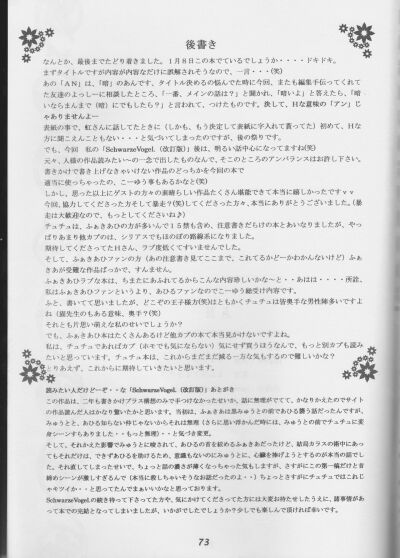 後書き
なんとか、最後までたどり着きました。1月8日この本でているでしょうか・・・・ドキドキ。
まずタイトルですが内容が内容なだけに誤解されそうなので、一言・・・(笑)
あの「AN」は、「暗」のあんです。タイトル決めるの悩んでた時に今回、またも編集手伝ってくれて
た友達のよっしーに相談したところ、「一番、メインの話は？」と聞かれ、「暗いよ」と答えたら、「暗
いならまんまで（暗）にでもしたら？」と言われて、つけたものです。決して、Hな意味の「アン」じ
ゃありませんよー
表紙の事で、虹さんに話してたときに（しかも、もう決定して表紙に字入れて貰ってた）初めて、Hな
方に聞こえんこともない・・・と気づいてしまったのですが、後の祭りです。
でも、今回 私の「SchwarzeVogel.（改訂版）」後は、明るい話中心になってますね(笑)
元々、人様の作品読みたい～の一念で出したものなんで、そこのところのアンバランスはお許し下さい。
書きかけで書き上げなきゃいけない作品のどっちかを今回の本で
適当に使っちゃったの、こーゆう事もあるかなと(笑)
しかし、思った以上にゲストの方々の素晴らしい作品たくさん堪能できて本当に嬉しかったですvv
今回、協力してくださった方そして暴走？(笑)してくださった方々、本当にありがとうございました。（暴
走は大歓迎なので、もっとしてくださいね♪）
チュチュは、ふぁきあひの方が多いんで15禁も含め、注意書きだらけの本とあいなりましたが、やっ
ぱりあまり他カプのは、シリアスでもほのぼの路線系になりました。
期待してくださってたHさん、ラブ度低くてすいませんでした。
そして、ふぁきあひファンの方（あの注意書き見てここまで、これてるかどーかわかんないけど）ふぁ
きあが受難な作品ばっかで、すんません。
ふぁきあひラブな本は、ちまたにあふれてるからこんな内容珍しいかな～と・・・あはは・・・・所詮、
私はふぁきあひファンというより、あひるファンなのでこーゆう総受け内容です。
ふと、書いてて思いましたが、どこぞの王子様方(笑)はともかくチュチュは皆奥手な男性陣多いですよ
ね（猫先生のもある意味、奥手？(笑)
それとも片思い萌えな私のせいでしょうか？
でも、ふぁきあひ本はたくさんあるけど他カプの本て本当見かけないですよね。
私は、チュチュであればカプ（ホモでも気にならない）気にせず買うほうなんで、もっと別カプも読み
たいと思っています。チュチュ本は、これからまだまだ減る一方な気もするので難しいかな？
とりあえず、これからに期待していきたいと思います。
読みたい人だけどーぞ・・な「SchwarzeVogel.（改訂版）」あとがき
この作品は、二年も書きかけプラス構想のみで手つけなかったせいか、話に無理がでてて、かなりかえたのでサイト
の作品読んだ人はかなり驚いたかと思います。当初は、ふぁきあは黒みゅうとの前であひる襲う話だったんですが、
みゅうとと、あひる知らない仲じゃないからそれは無理（さらに思い浮かんだ時には、みゅうとの前でチュチュに変身
シーンすらありました・・もっと無理）・・と気づき変更。
そして、それかえた影響でみゅうとに唆されて、あひるの首を絞めるふぁきあだったけど、結局カラスの術中にあっ
てもそれだけは、できずあひるを助けるため、意識もないのにみゅうとに、心臓を捧げようとするのが本当の話でし
た。それ直してしまったせいで、ちょっと話の濃さが薄くなっちゃった気もしますが、さすがにこの第一稿だけど首
締めシーンが激しすぎるんで（本当に殺しちゃいそうなお話だったのよ・・）ちょっとさすがにチュチュではこれじ
ゃキツイか・・と思ってたんでまぁいいかなと思っております。
SchwarzeVogelの続き待って下さってた方や、気にかけてくださってた方には大変お待たせしたうえに、諸事情があ
って本での完結となってしまいましたが、いかがでしたでしょうか？少しでも楽しんで頂ければ幸いです。
73